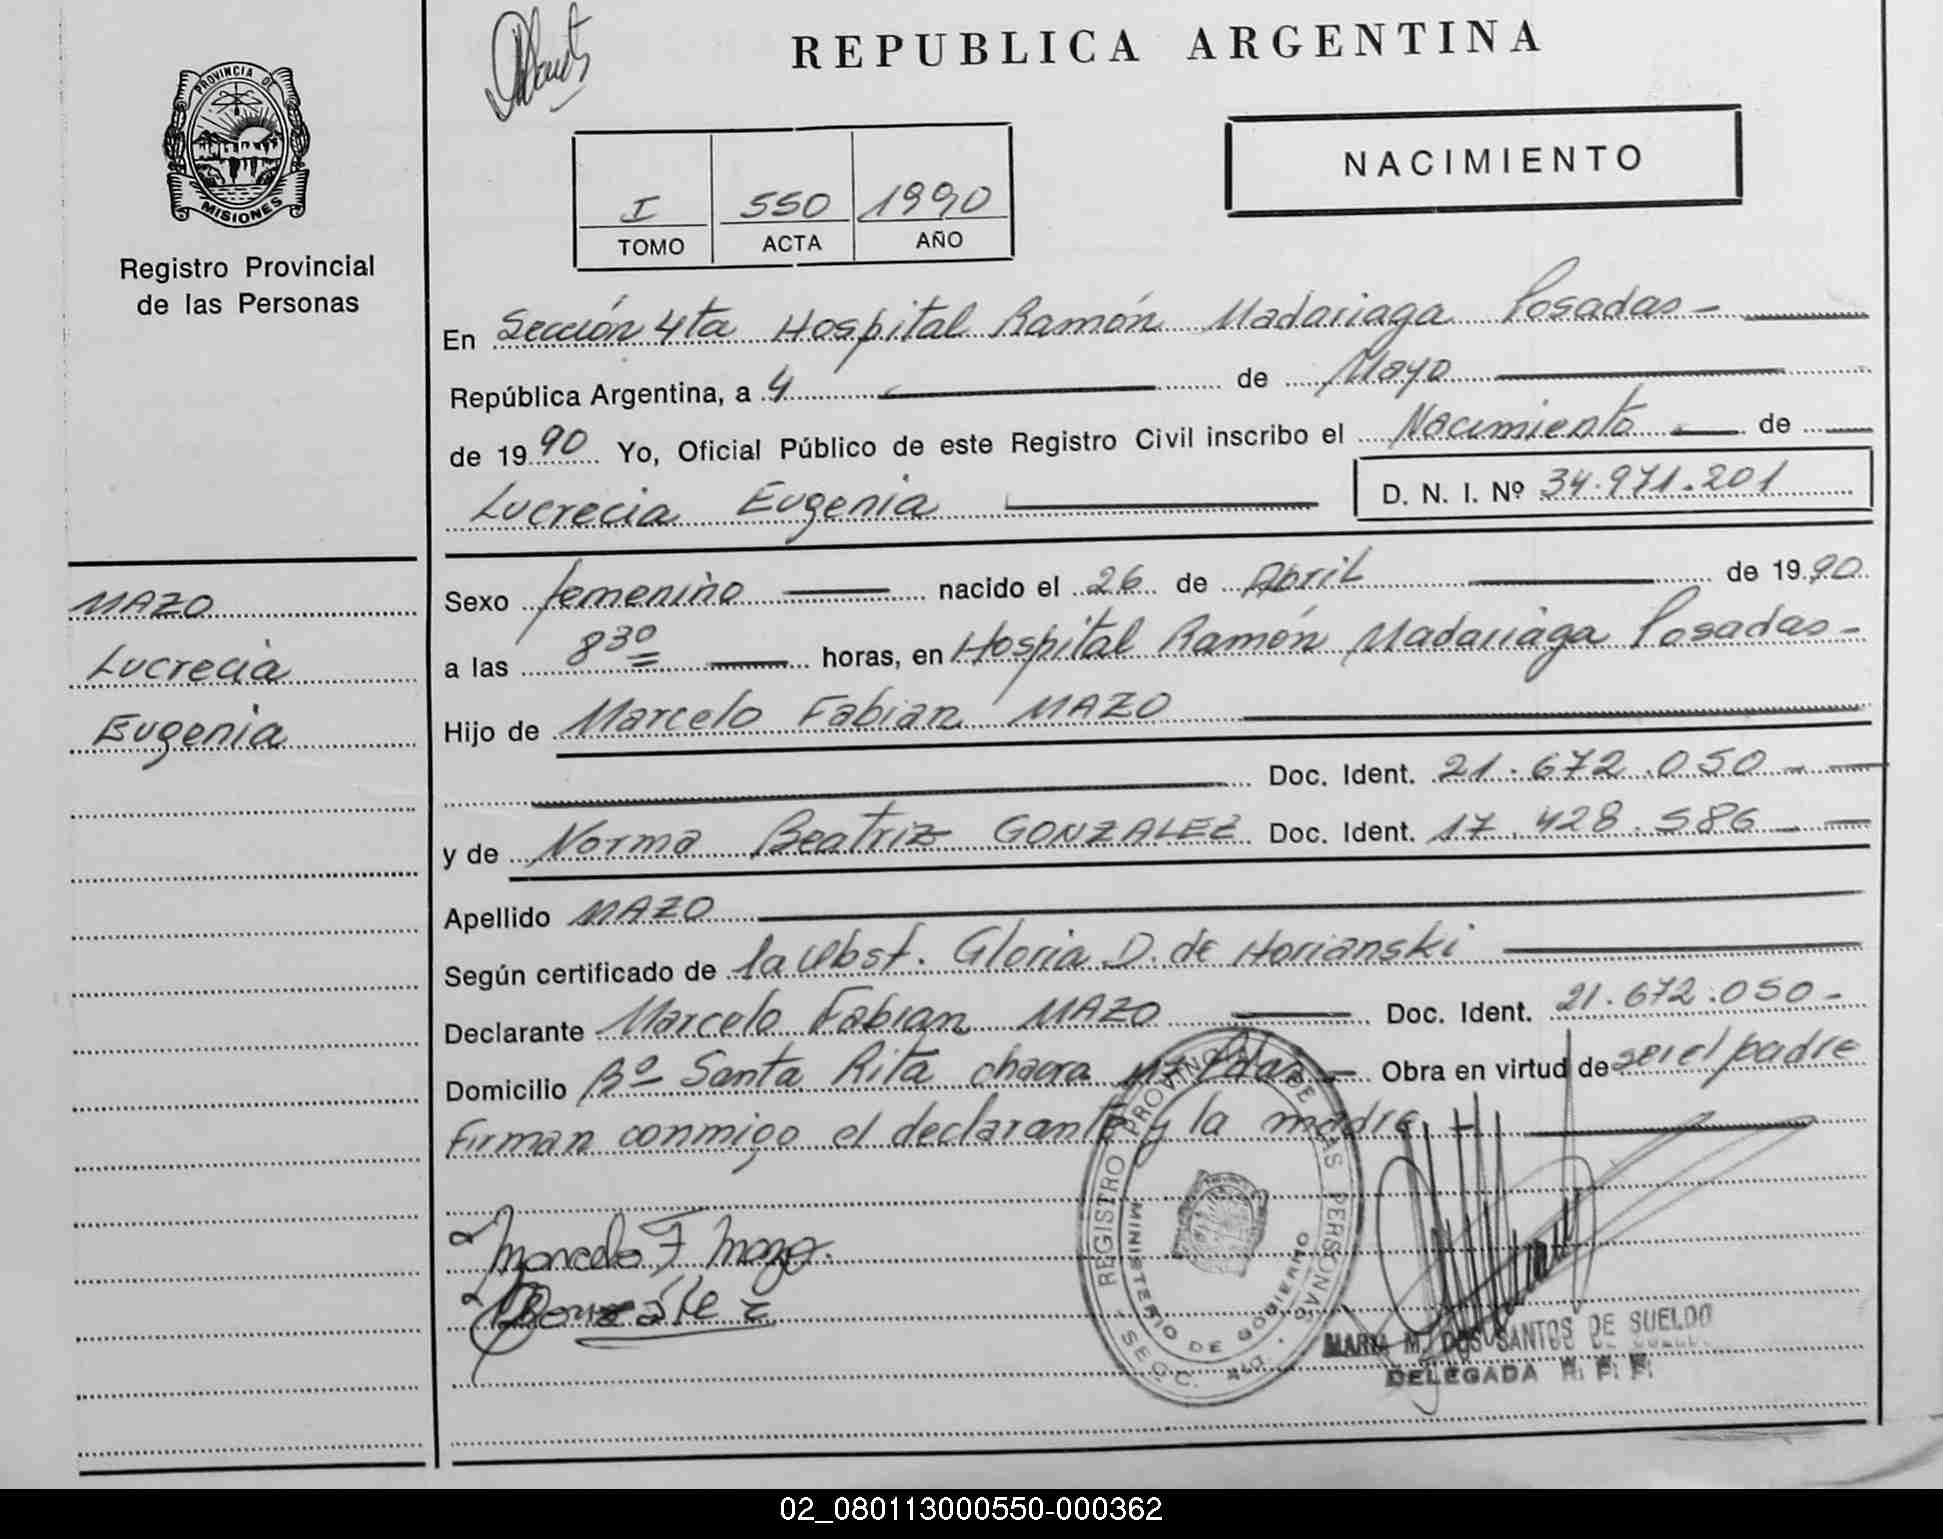 REPUBLICA ARGENTINA
PROVINCIA DE
MISIONES
Registro Provincial
de las Personas
NACIMIENTO
I 550 1990
TOMO ACTA AÑO
En Sección 4ta Hospital Ramón Madariaga Posadas
República Argentina, a 4 de Mayo
de 1990 Yo, Oficial Público de este Registro Civil inscribo el Nacimiento de
Lucrecia Eugenia D. N. I. Nº 34.971.201
MAZO
Lucrecia
Eugenia
Sexo femenino nacido el 26 de Abril de 1990
a las 8 30 horas, en Hospital Ramón Madariaga Posadas
Hijo de Marcelo Fabian MAZO
Doc. Ident. 21.672.050
y de Norma Beatriz GONZALEZ Doc. Ident. 17.428.586
Apellido MAZO
Según certificado de la Obst. Gloria D. de Horianski
Declarante Marcelo Fabian MAZO Doc. Ident. 21.672.050
Domicilio Bº Santa Rita chacra Pdas Obra en virtud de ser el padre
Firman conmigo el declarante y la madre
Marcelo F Mazo.
González
REGISTRO PROVINCIAL DE LAS PERSONAS
MINISTERIO DE GOBIERNO
SECC. 4ta
MARIA M. DOS SANTOS DE SUELDO
DELEGADA R. P. P.
02_080113000550-000362